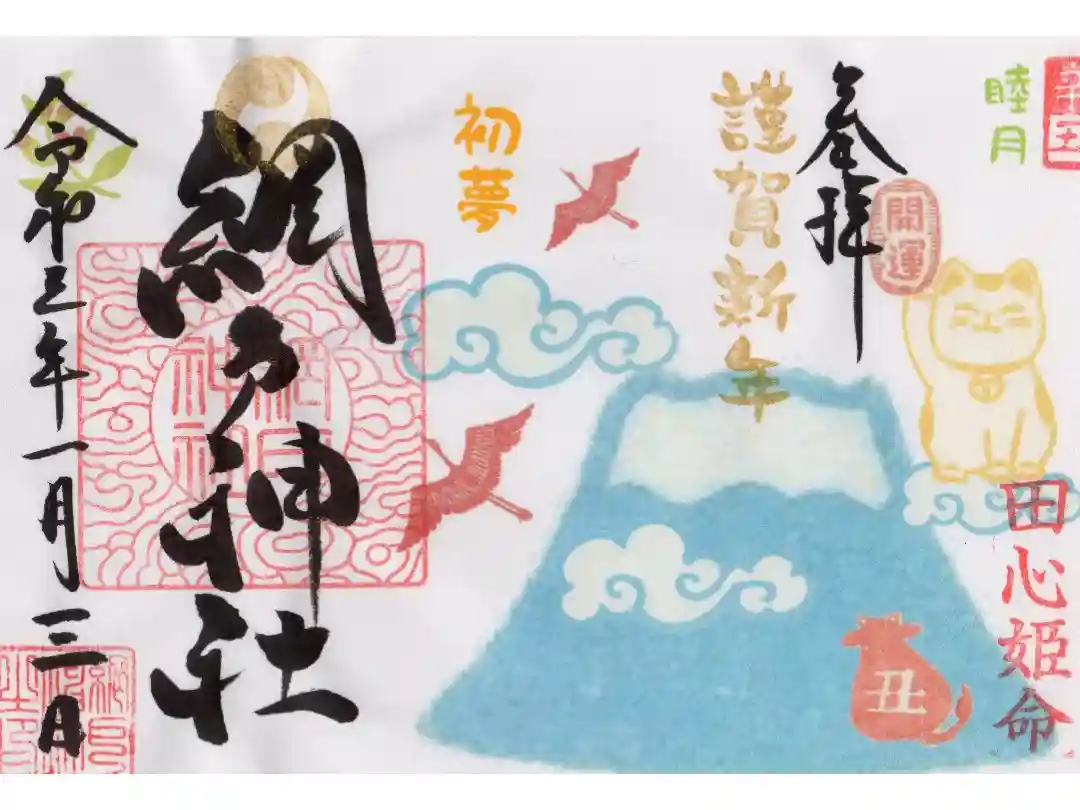 睦月
奉拝
開運
田心姫命
謹賀新年
丑
初夢
網戸神社
網戸神社
令和三年一月三日